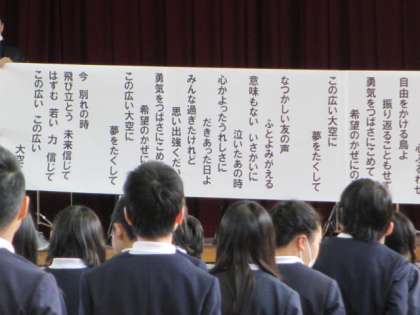 自由をかける鳥よ
振り返ることもせ
勇気をつばさにこめて
希望のかぜにの
この広い大空に
夢をたくして
なつかしい友の声
ふとよみがえる
意味もない いさかいに
泣いたあの時
心かよったうれしさに
だきあった日よ
みんな過ぎたけれど
思い出強くだい
勇気をつばさにこめて
希望のかぜにの
この広い大空に
夢をたくして
今 別れの時
飛び立とう 未来信じて
はずむ 若い 力 信じて
この広い この広い
大空